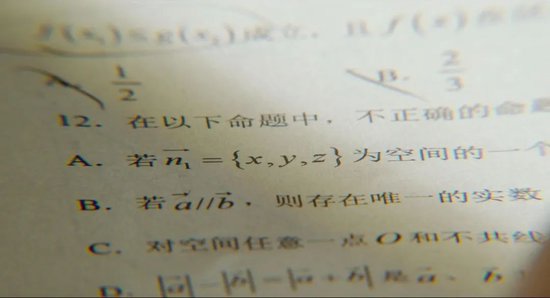 f(x₁)≤g(x₂)成立, 且 f(x)在
A. 1/2 B. 2/3
12. 在以下命题中, 不正确的命题
A. 若 n₁⃗ = {x,y,z} 为空间的一个
B. 若 a⃗//b⃗, 则存在唯一的实数
C. 对空间任意一点 O 和不共线
D. |a⃗|-|b⃗|=|a⃗+b⃗| 是 a⃗、b⃗